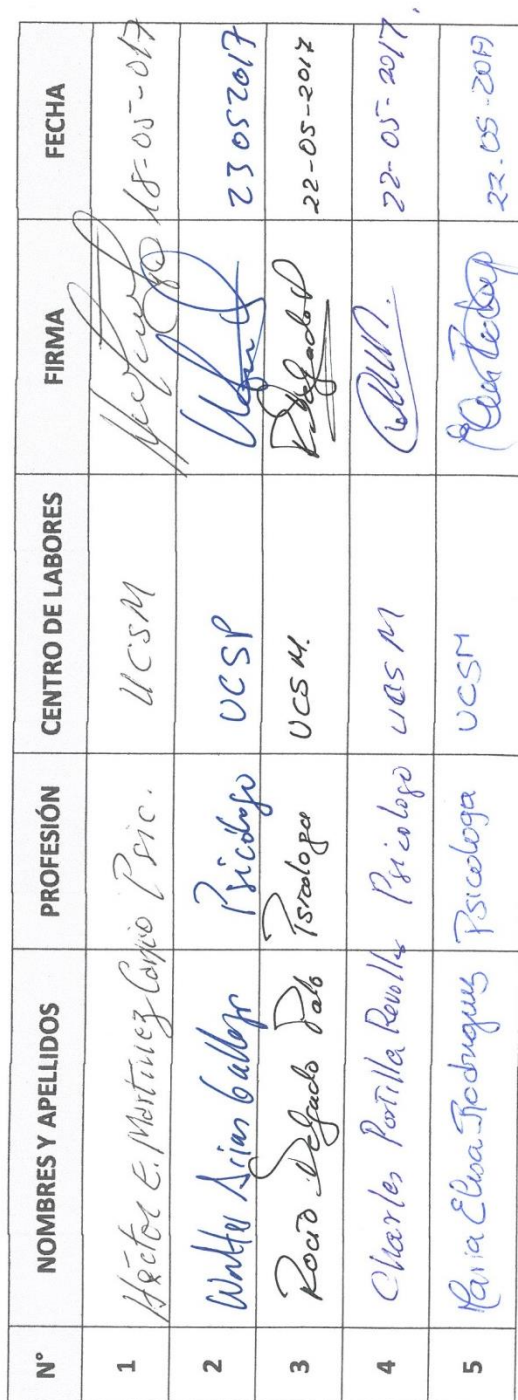 N° NOMBRES Y APELLIDOS PROFESIÓN CENTRO DE LABORES FIRMA FECHA
1 Héctor E. Martínez Carpio Psic. UCSM 18-05-017
2 Walter Arias Gallegos Psicólogo UCSP 23 05 2017
3 Rocío Delgado Psicologa UCSM. 22-05-2017
4 Charles Portilla Revollar Psicologo UCSM 22-05-2017.
5 Maria Elisa Rodriguez Psicologa UCSM 22-05-2017